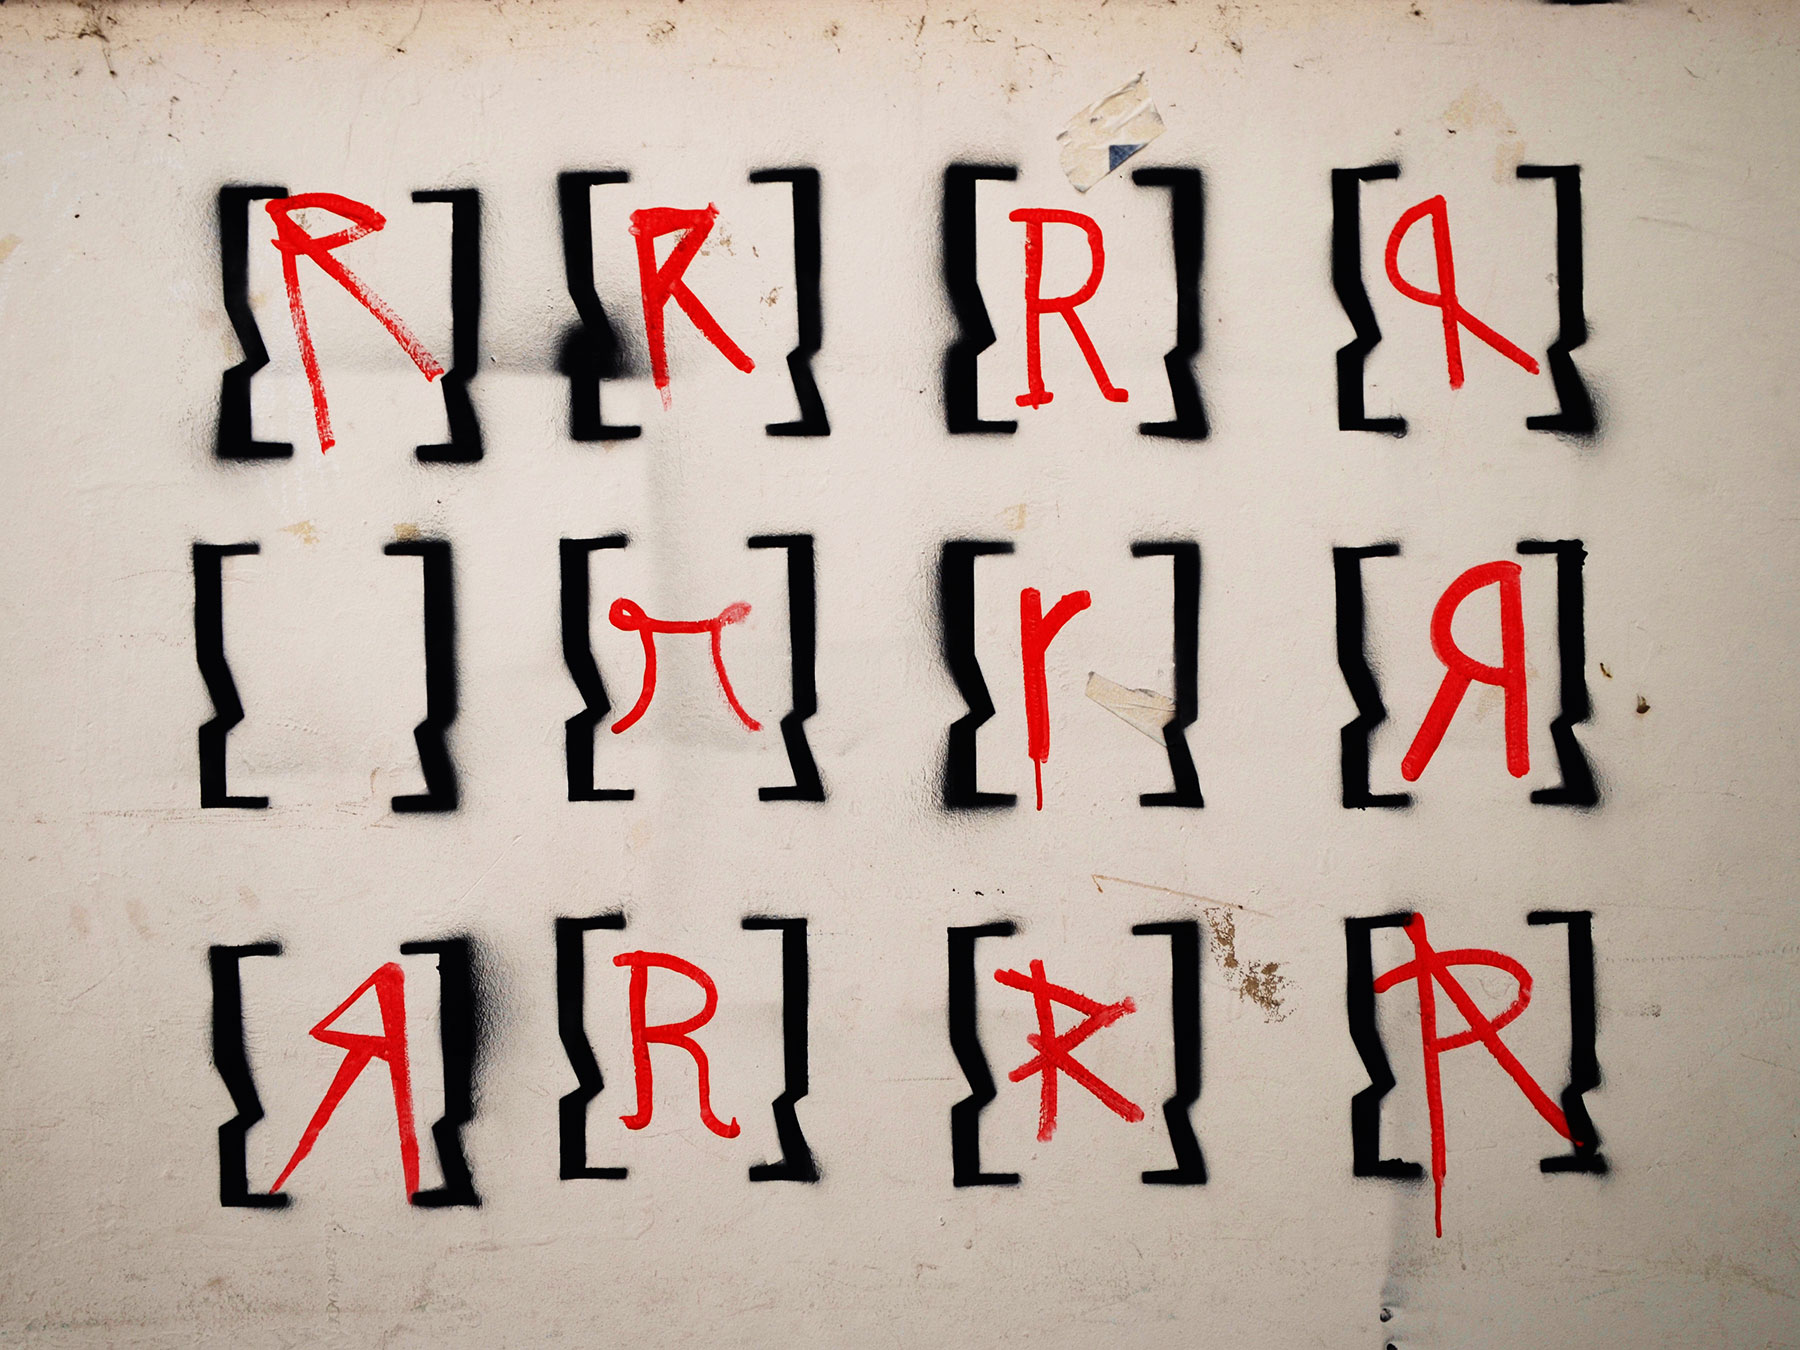 [R] [R] [R] [Я]
[ ] [π] [r] [Я]
[Я] [R] [R] [R]